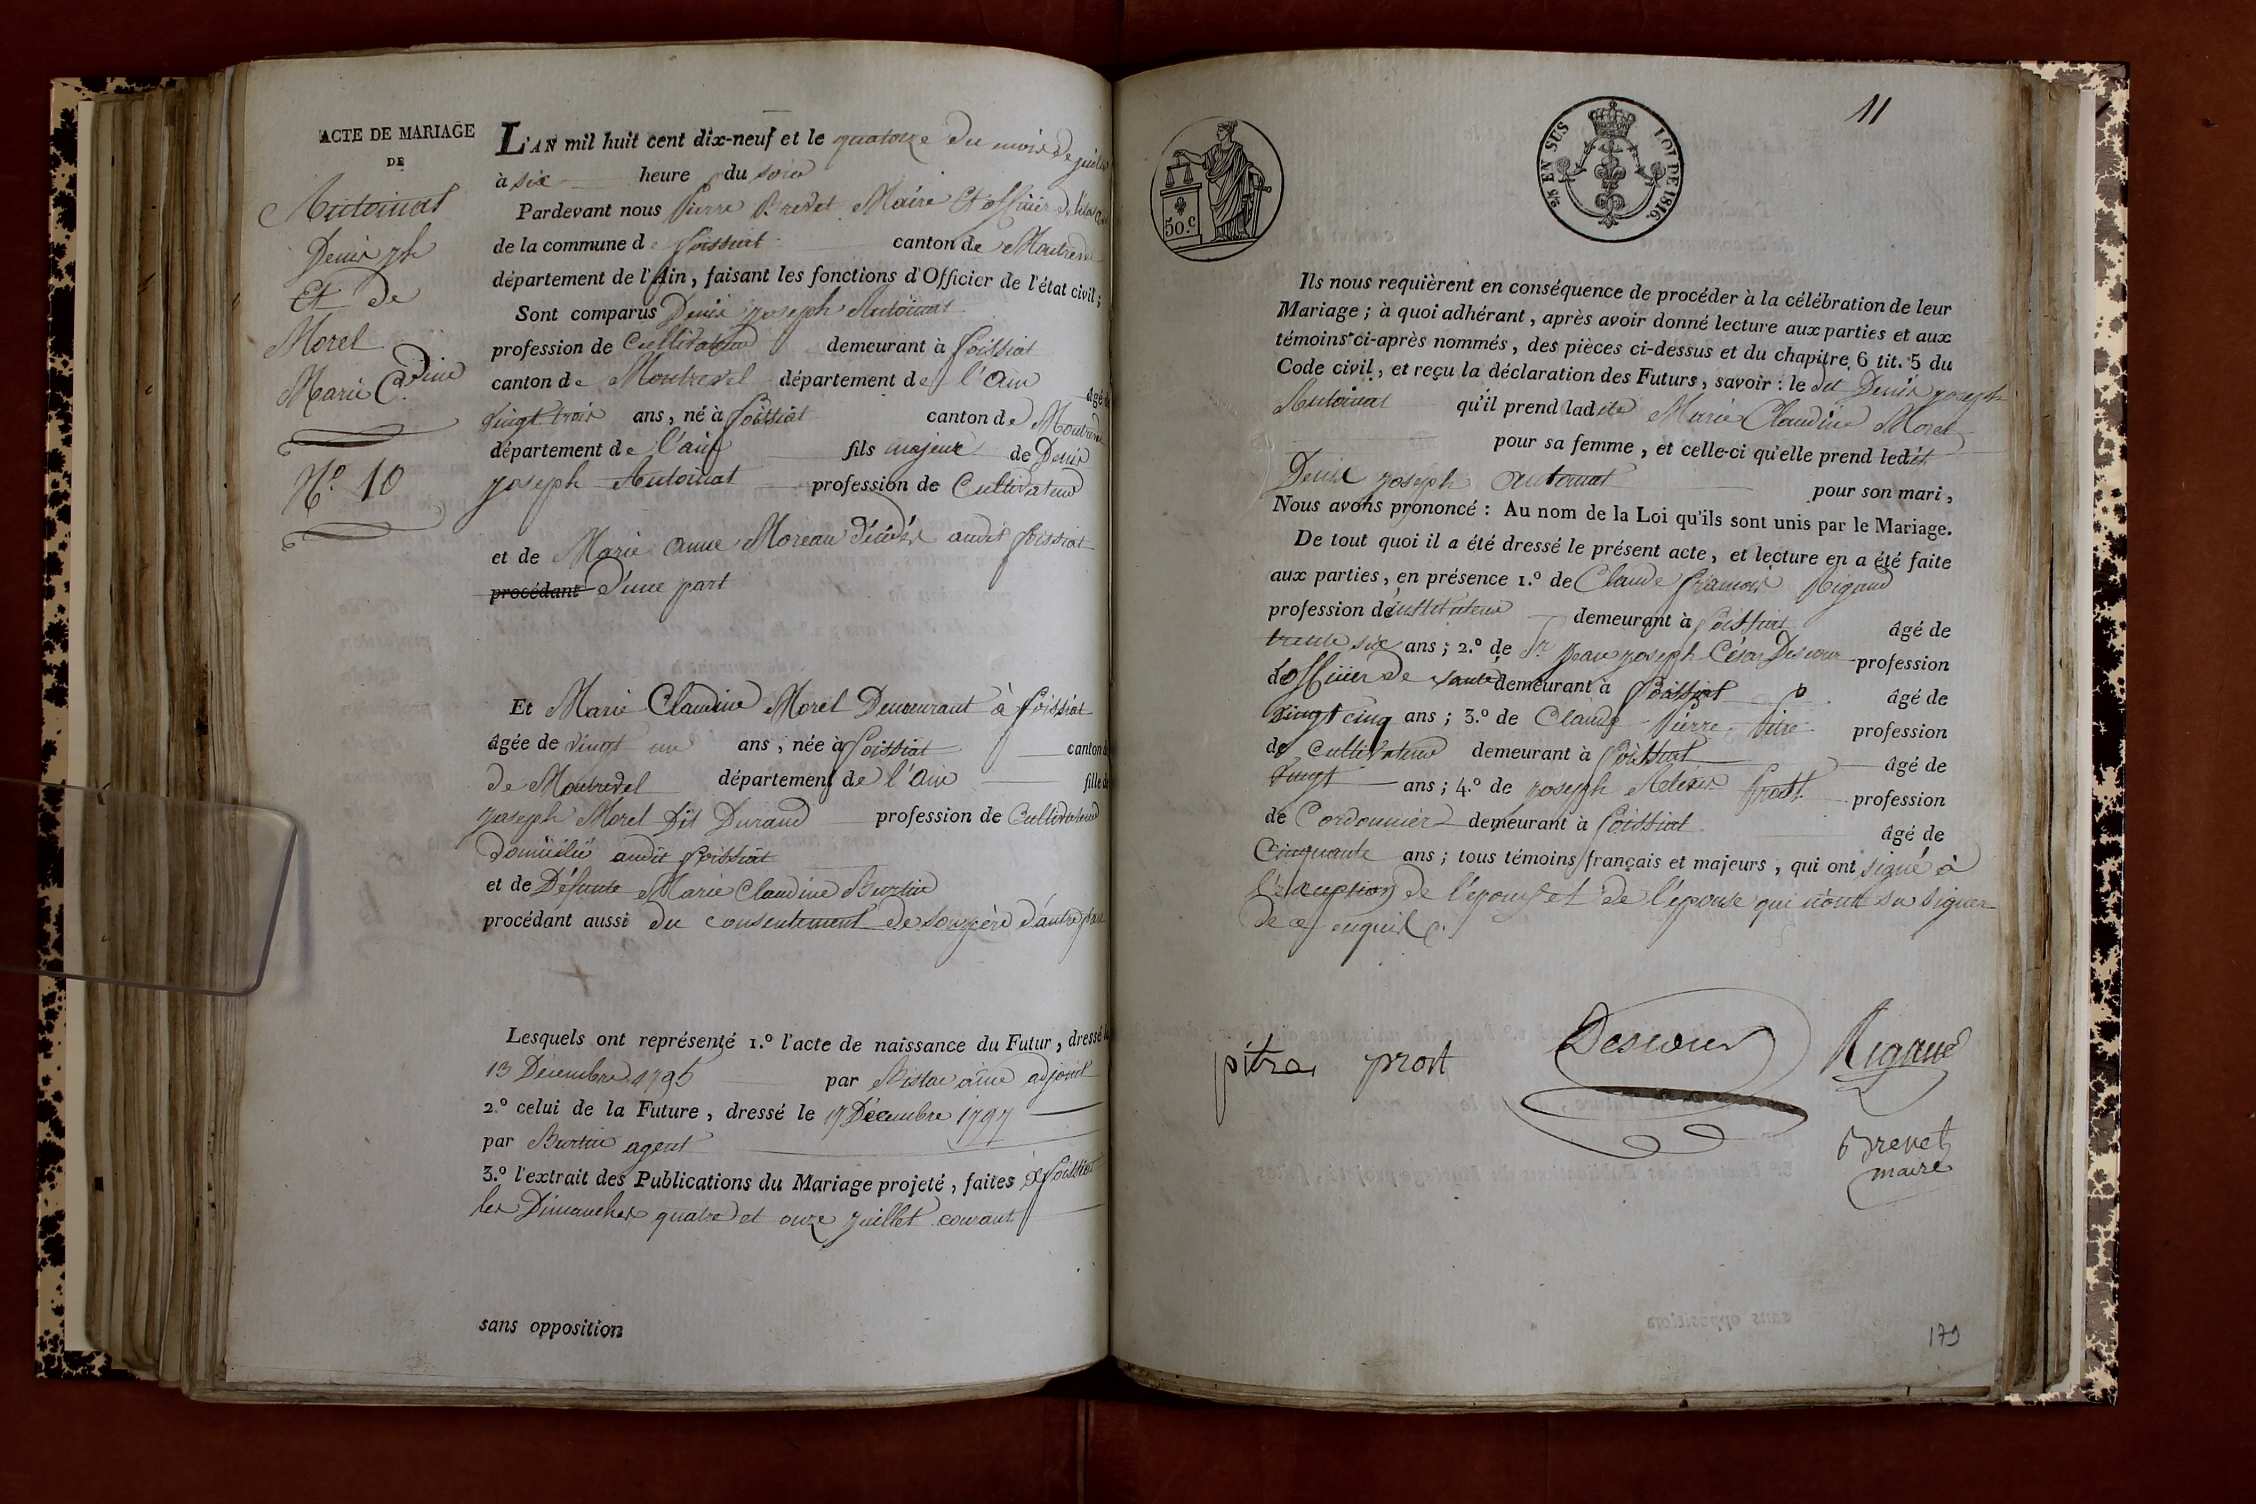 ACTE DE MARIAGE
DE
Antoinat
Denis jph
Et de
Morel
Marie Cdine
N.º 10
L'AN mil huit cent dix-neuf et le quatorze du mois de juillet
à six heure du soir
Pardevant nous Pierre Brevet Maire Et officier de l'état Civil
de la commune de foissiat canton de Montrevel
département de l'Ain, faisant les fonctions d'Officier de l'état civil;
Sont comparus Denis joseph Antoinat
profession de Cultivateur demeurant à foissiat
canton de Montrevel département de l'ain âgé de
vingt trois ans, né à foissiat canton de Montrevel
département de l'ain fils majeur de Denis
joseph Antoinat profession de Cultivateur
et de Marie anne Moreau décédés audit foissiat
procédant d'une part
Et Marie Claudine Morel Demeurant à foissiat
âgée de vingt un ans, née à foissiat canton
de Montrevel département de l'ain fille de
joseph Morel dit Durand profession de Cultivateur
domicilié audit foissiat
et de Défunte Marie Claudine Burtin
procédant aussi du consentement de son père d'autre part
Lesquels ont représenté 1.º l'acte de naissance du Futur, dressé le
13 Décembre 1795 par adjoint
2.º celui de la Future, dressé le 17 Décembre 1797
par Burtin agent
3.º l'extrait des Publications du Mariage projeté, faites à foissiat
les Dimanches quatre et onze juillet courant
sans opposition
11
50.C
25 EN SUS LOI DE 1816.
Ils nous requièrent en conséquence de procéder à la célébration de leur
Mariage; à quoi adhérant, après avoir donné lecture aux parties et aux
témoins ci-après nommés, des pièces ci-dessus et du chapitre 6 tit. 5 du
Code civil, et reçu la déclaration des Futurs, savoir: le dit Denis joseph
Antoinat qu'il prend ladite Marie Claudine Morel
pour sa femme, et celle-ci qu'elle prend ledit
Denis joseph antoinat pour son mari,
Nous avons prononcé: Au nom de la Loi qu'ils sont unis par le Mariage.
De tout quoi il a été dressé le présent acte, et lecture en a été faite
aux parties, en présence 1.º de Claude françois Rigaud
profession de instituteur demeurant à foissiat âgé de
trente six ans; 2.º de Sr jean joseph César Descour profession
d'officier de santé demeurant à foissiat âgé de
vingt cinq ans; 3.º de Claude Pierre Pitre profession
de cultivateur demeurant à foissiat âgé de
vingt ans; 4.º de joseph Alexis prost profession
de Cordonnier demeurant à foissiat âgé de
Cinquante ans; tous témoins français et majeurs, qui ont signé à
l'exception de l'époux et de l'épouse qui n'ont su signer
de ce enquis
pitre prost Descour Rigaud
Brevet
maire
179